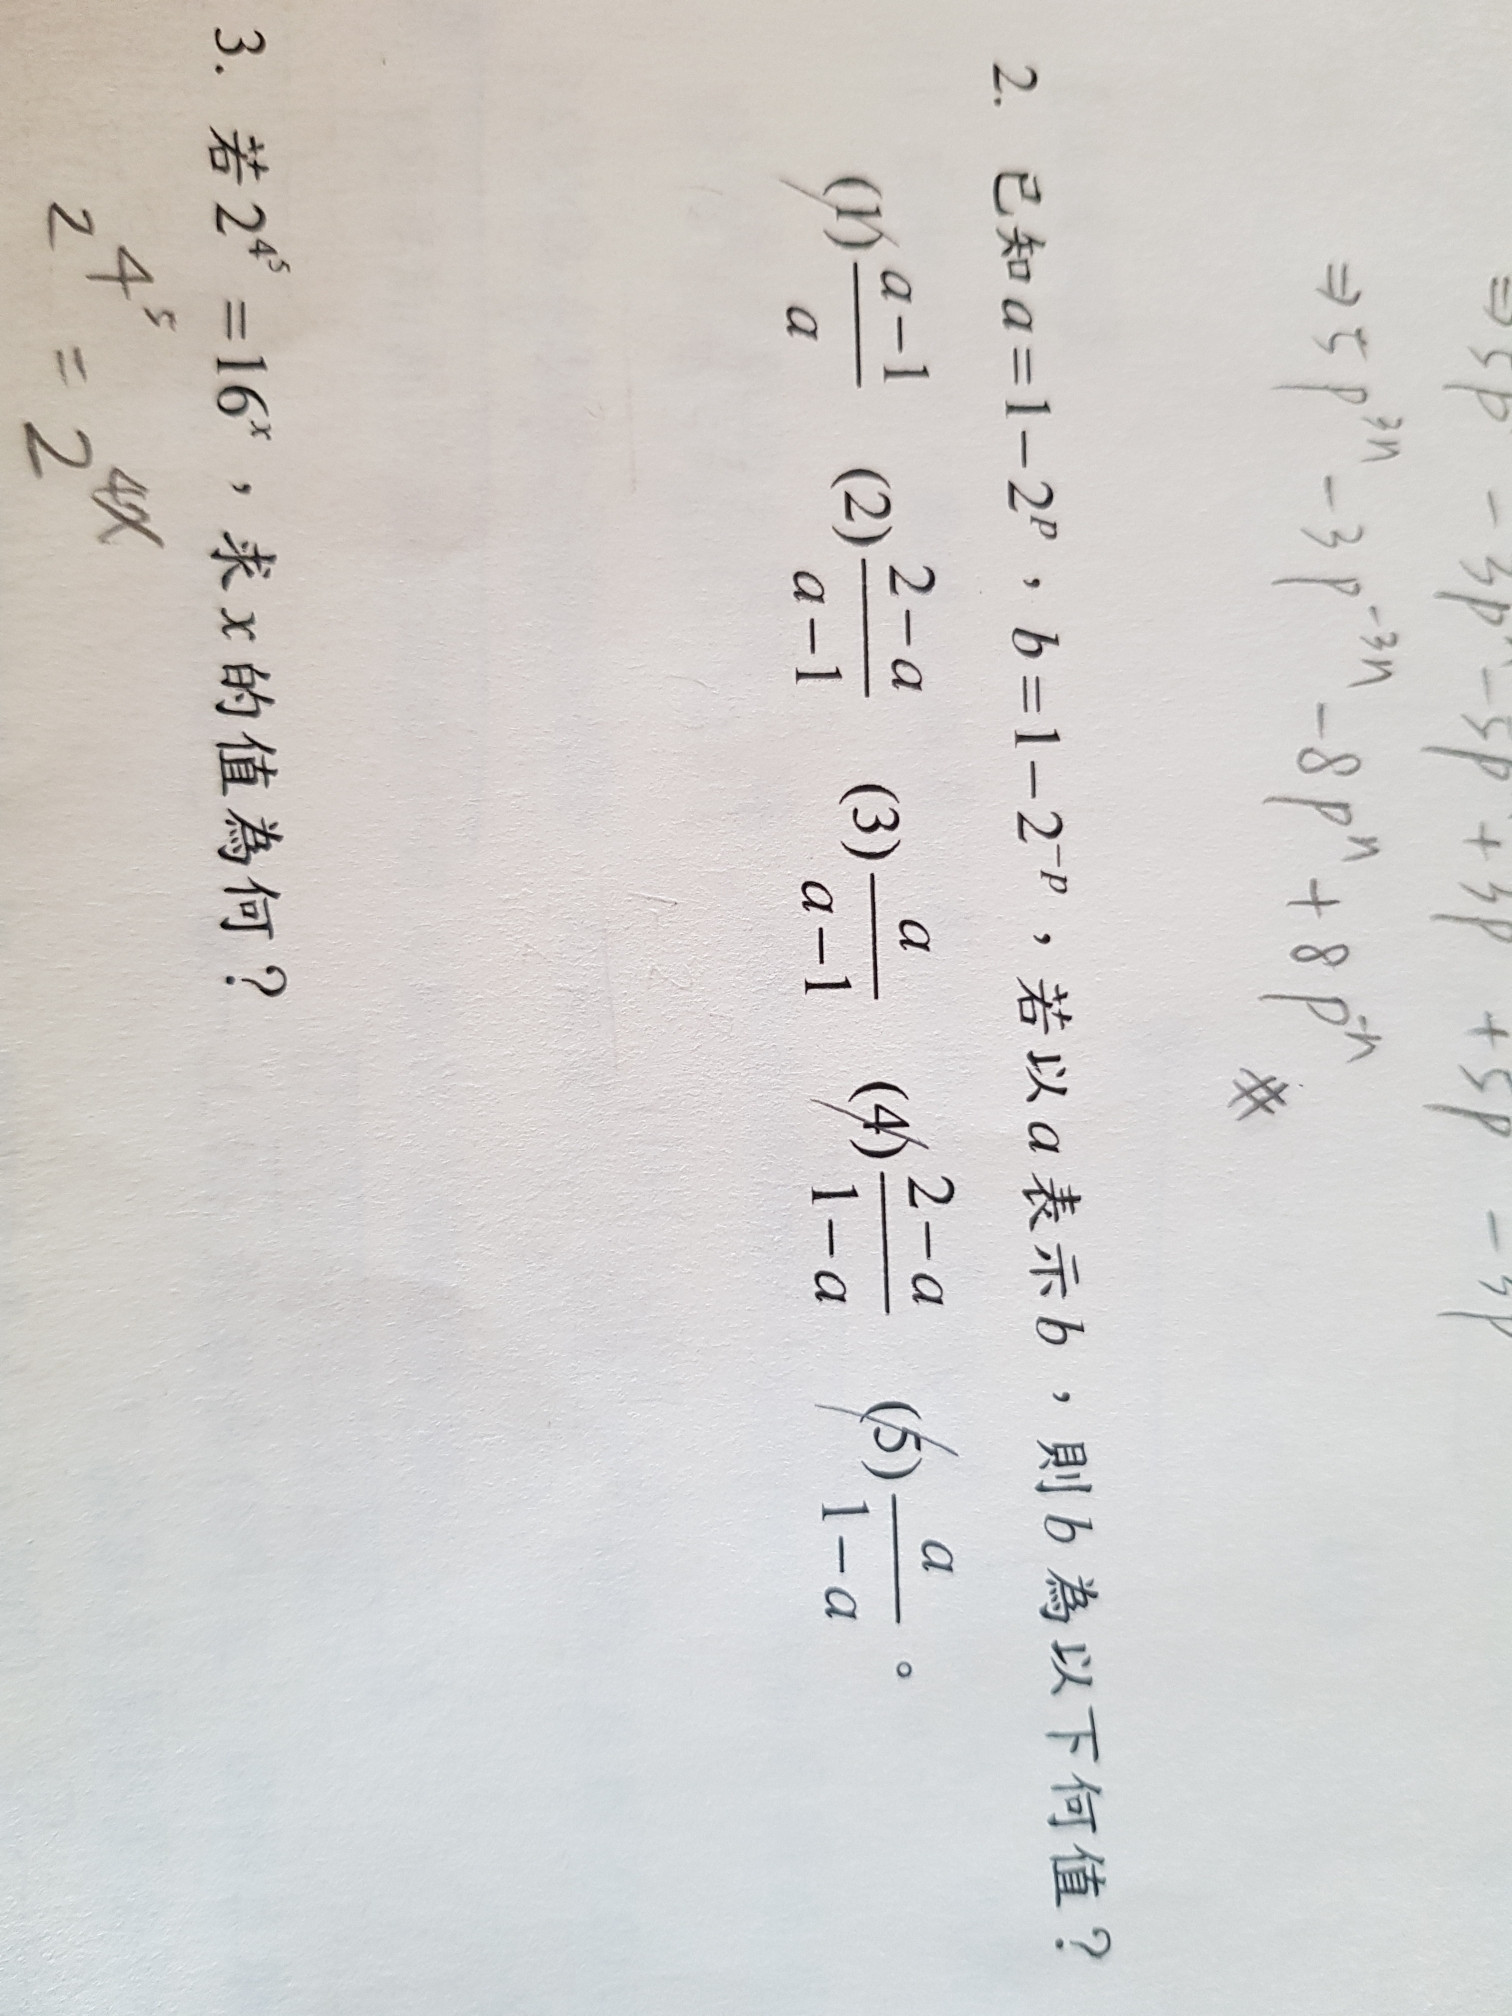 ⇒ 5p³ⁿ - 3p⁻³ⁿ - 8pⁿ + 8p⁻ⁿ #
2. 已知a=1-2ᵖ,b=1-2⁻ᵖ,若以a表示b,則b為以下何值?
(1) (a-1)/a (2) (2-a)/(a-1) (3) a/(a-1) (4) (2-a)/(1-a) (5) a/(1-a)。
3. 若2^4^5=16ˣ,求x的值為何?
2^4^5 = 2^4x